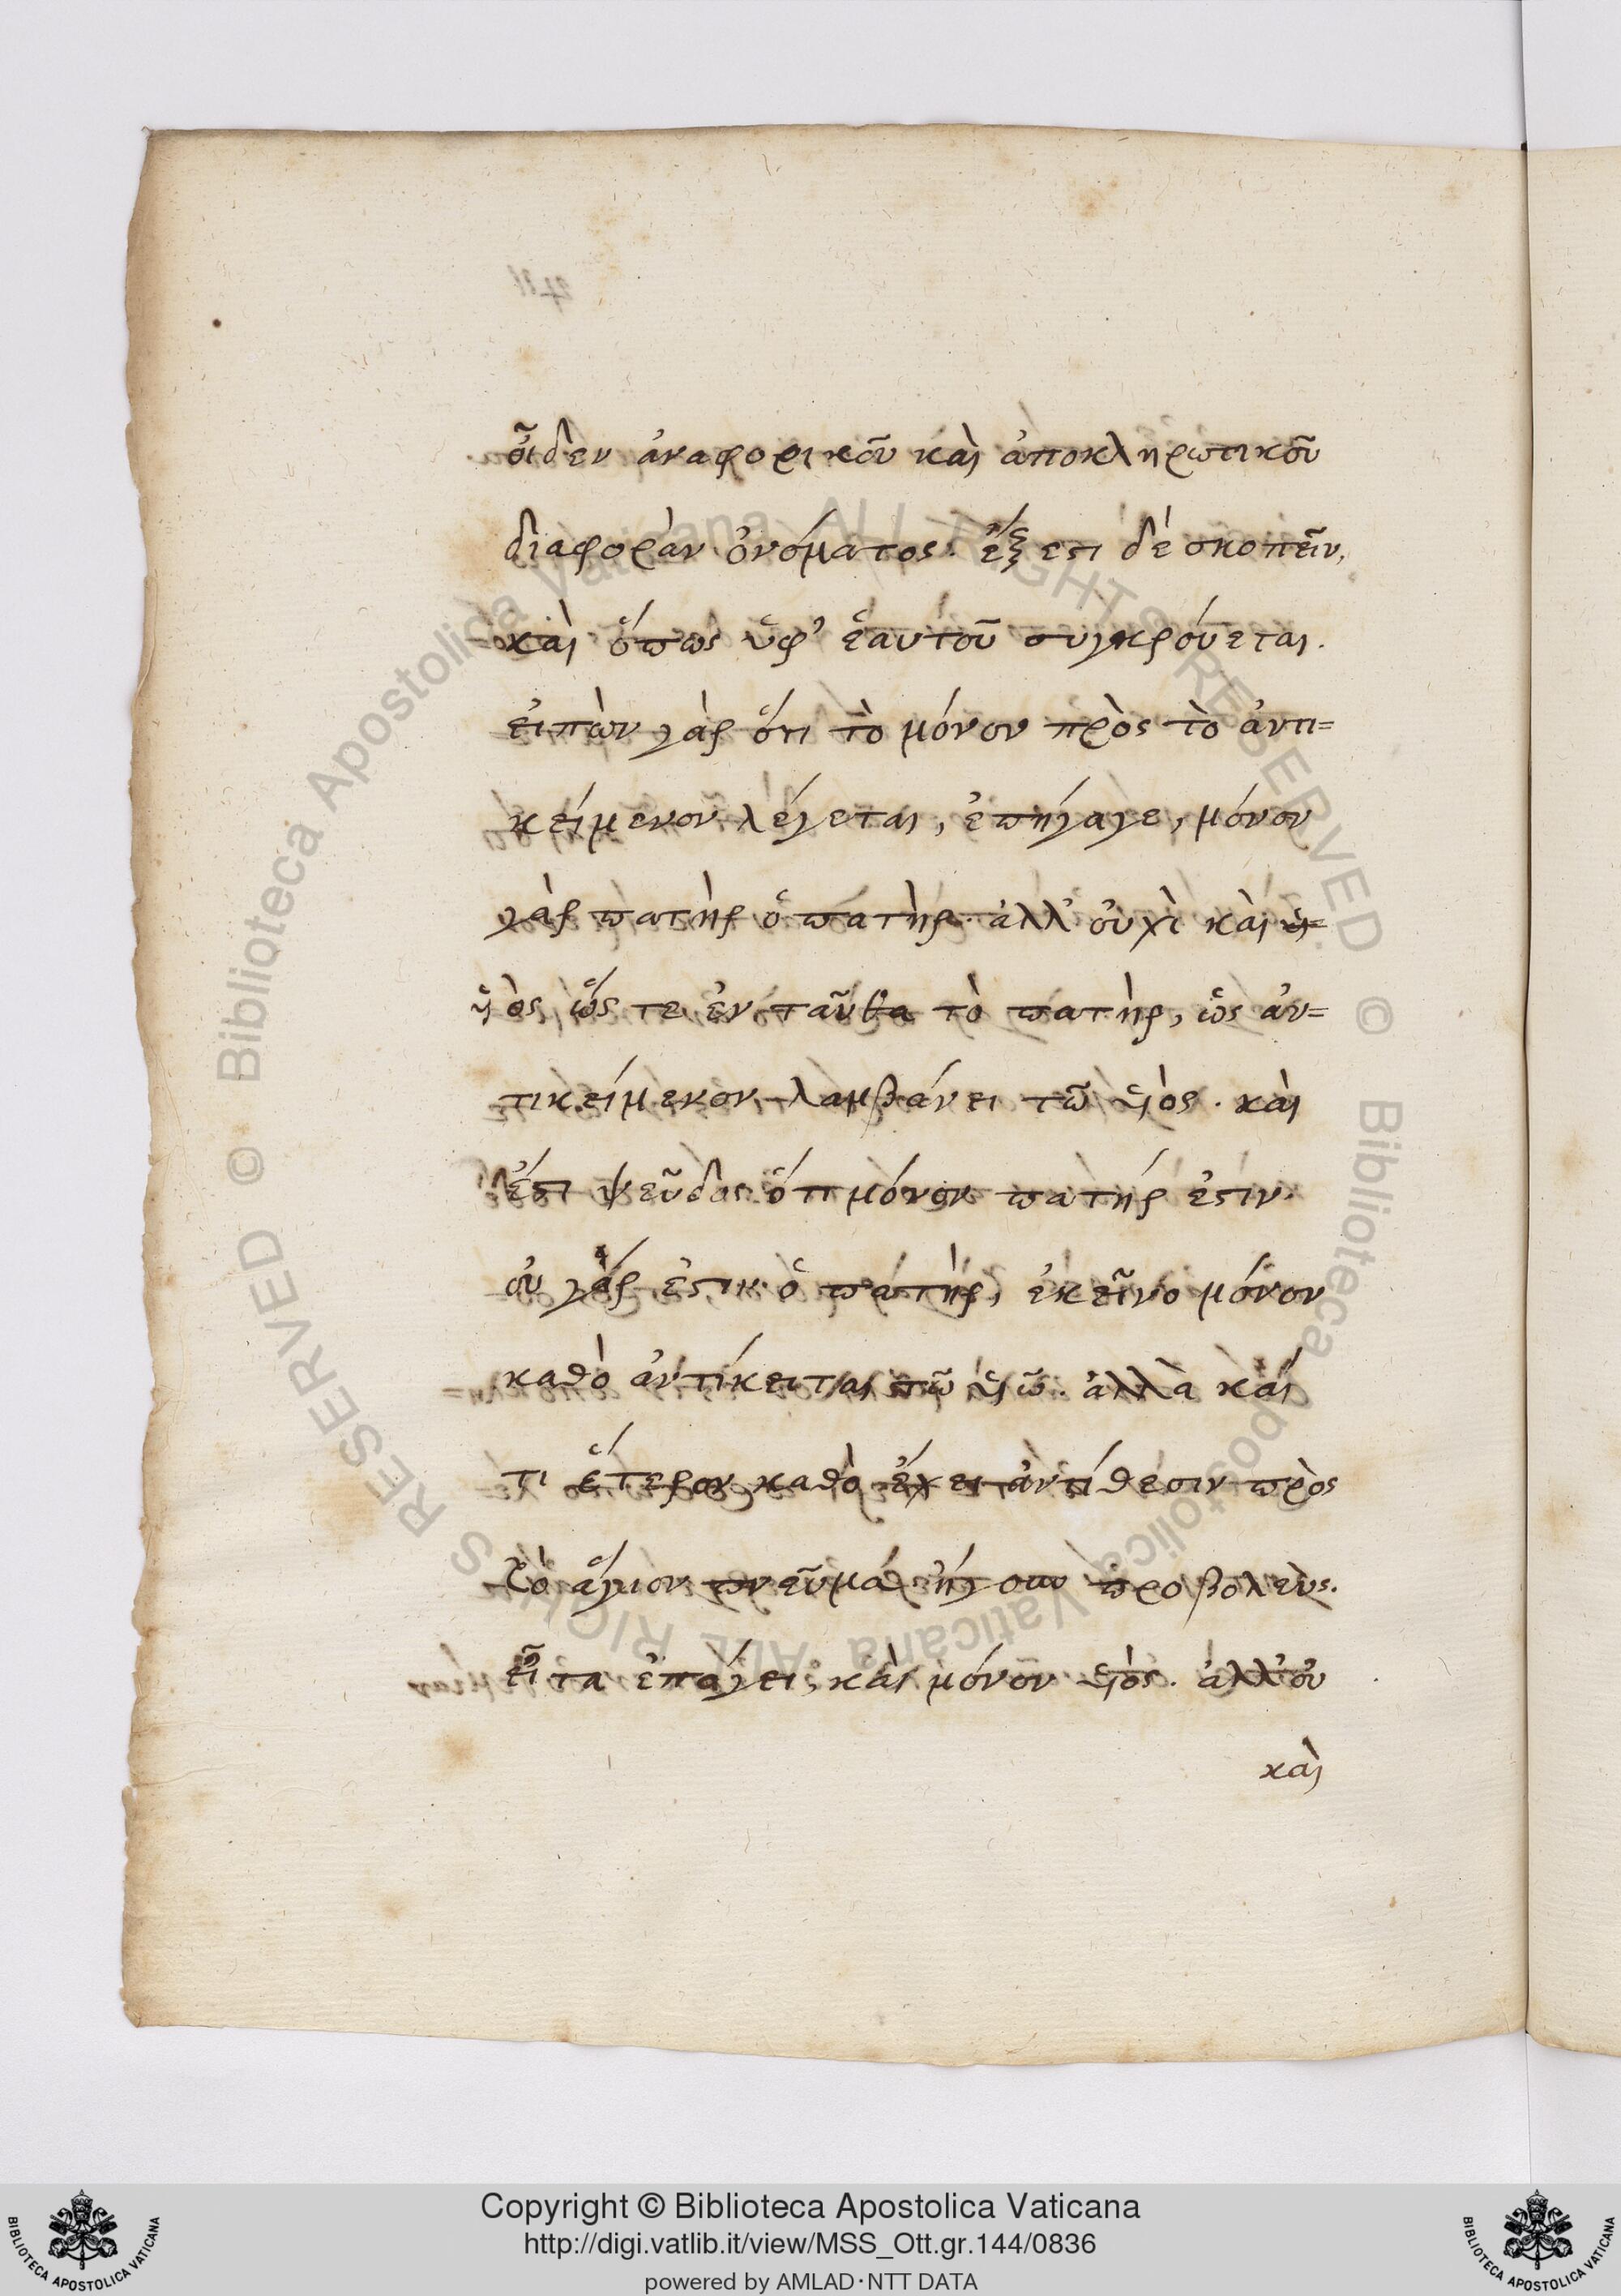 οἶδεν ἀναφορικοῦ καὶ ἀποκληρωτικοῦ
διαφορὰν ὀνόματος. ἔξεστι δὲ σκοπεῖν,
καὶ ὅπως ὑφ' ἑαυτοῦ συγκρούεται.
εἰπὼν γὰρ ὅτι τὸ μόνον πρὸς τὸ ἀντι=
κείμενον λέγεται, ἐπήγαγε, μόνον
γὰρ πατὴρ ὁ πατὴρ. ἀλλ' οὐχὶ καὶ
ὑιὸς ὥς τε ἐνταῦθα τὸ πατὴρ, ὡς ἀν=
τικείμενον λαμβάνει τῶ ὑιὸς. καὶ
ἔστι ψεῦδος ὅτι μόνον πατήρ ἐστιν.
οὐ γάρ ἐστιν ὁ πατὴρ, ἐκεῖνο μόνον
καθὸ ἀντίκειται τῶ ὑιῶ. ἀλλὰ καί
τι ἕτερον καθὸ ἔχει ἀντίθεσιν πρὸς
τὸ ἅγιον πνεῦμα. ἤγουν προβολεὺς.
εἶτα ἐπάγει, καὶ μόνον ὑιὸς. ἀλλ' οὐ
καὶ
Copyright © Biblioteca Apostolica Vaticana
http://digi.vatlib.it/view/MSS_Ott.gr.144/0836
powered by AMLAD·NTT DATA
BIBLIOTECA APOSTOLICA VATICANA
BIBLIOTECA APOSTOLICA VATICANA
© Biblioteca Apostolica Vaticana ALL RIGHTS RESERVED
© Biblioteca Apostolica Vaticana ALL RIGHTS RESERVED